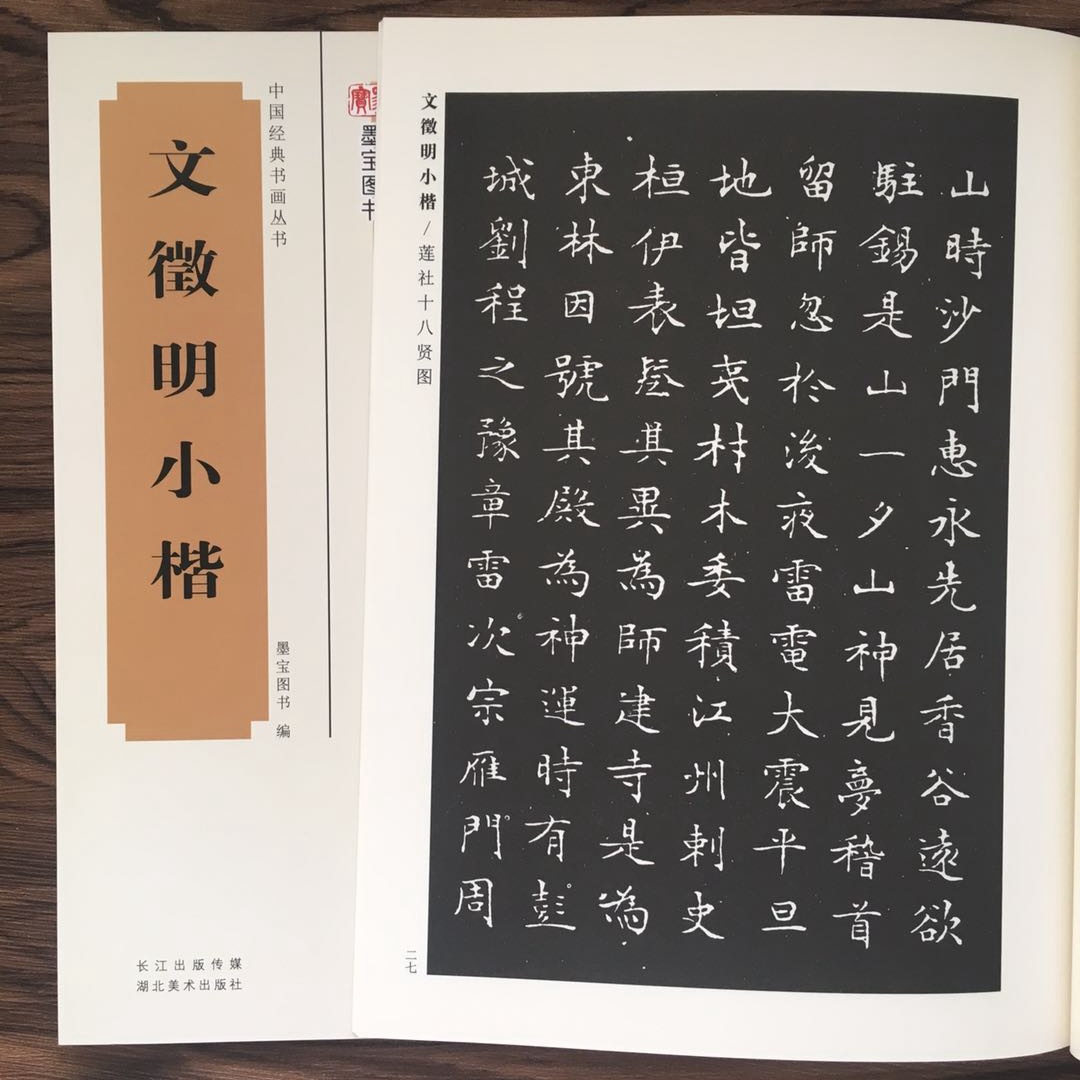 中国经典书画丛书
文徵明小楷
墨宝图书 编
长江出版传媒
湖北美术出版社
墨宝图书
文徵明小楷/莲社十八贤图
山時沙門惠永先居香谷遠欲
駐錫是山一夕山神見夢稽首
留師忽於後夜雷電大震平旦
地皆坦夷材木委積江州刺史
桓伊表其異為師建寺是為
東林因號其殿為神運時有彭
城劉程之豫章雷次宗雁門周
二七